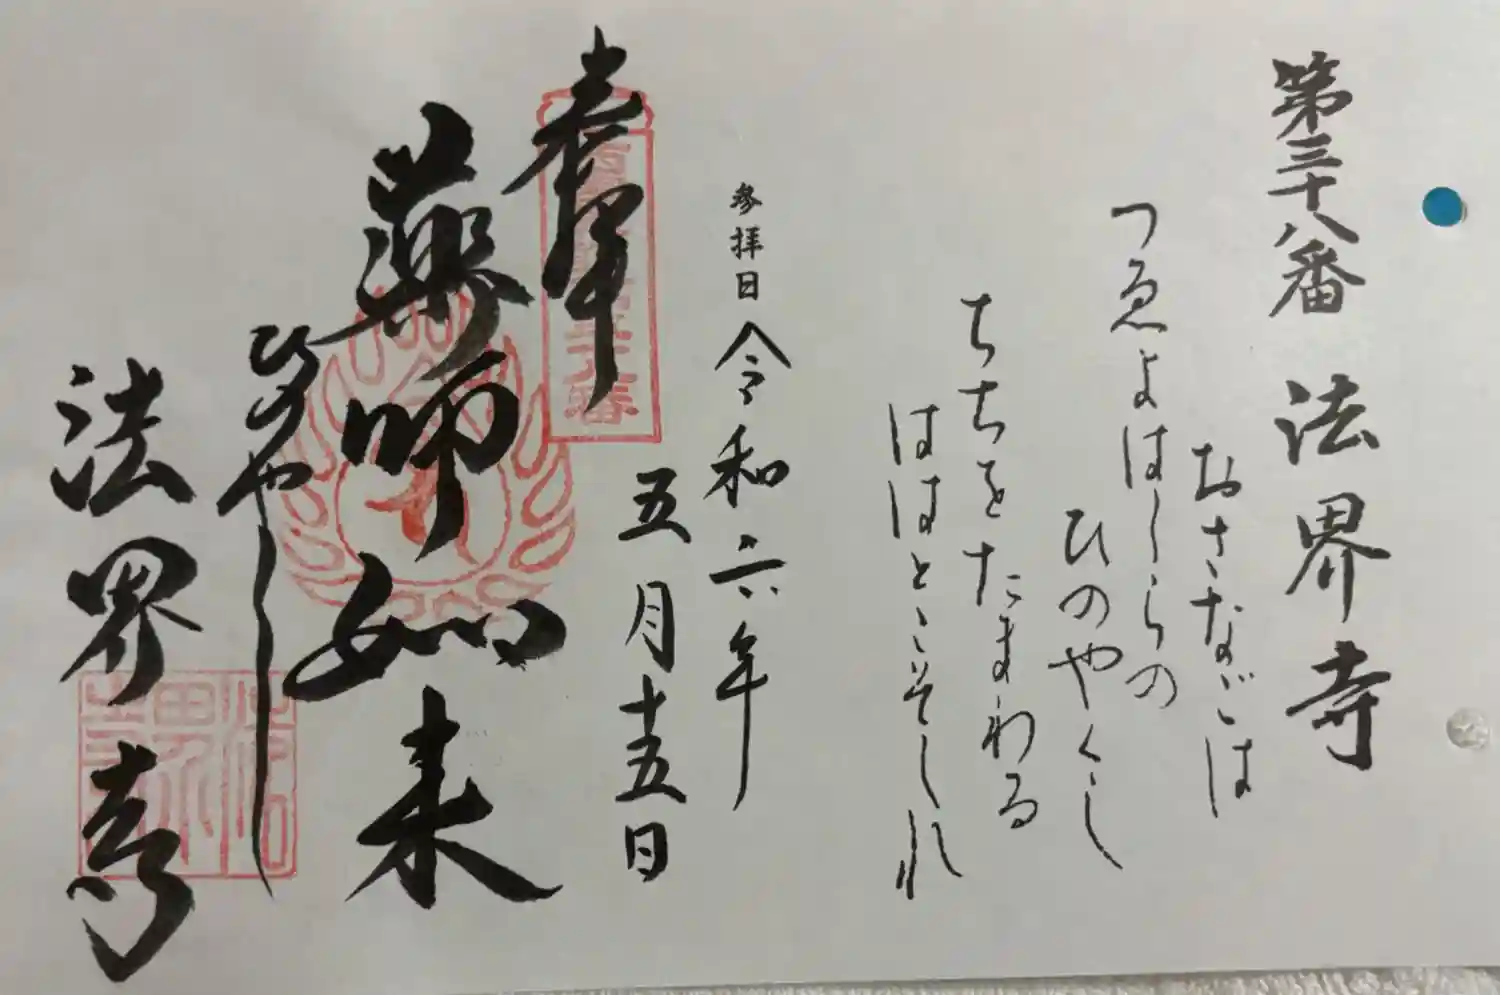 第三十八番 法界寺
おさなごは
つゑよはしらの
ひのやくし
ちちをたまわる
ははとこそしれ
参拝日 令和六年
五月十五日
奉拝
薬師如来
ひのやくし
法界寺
法界寺